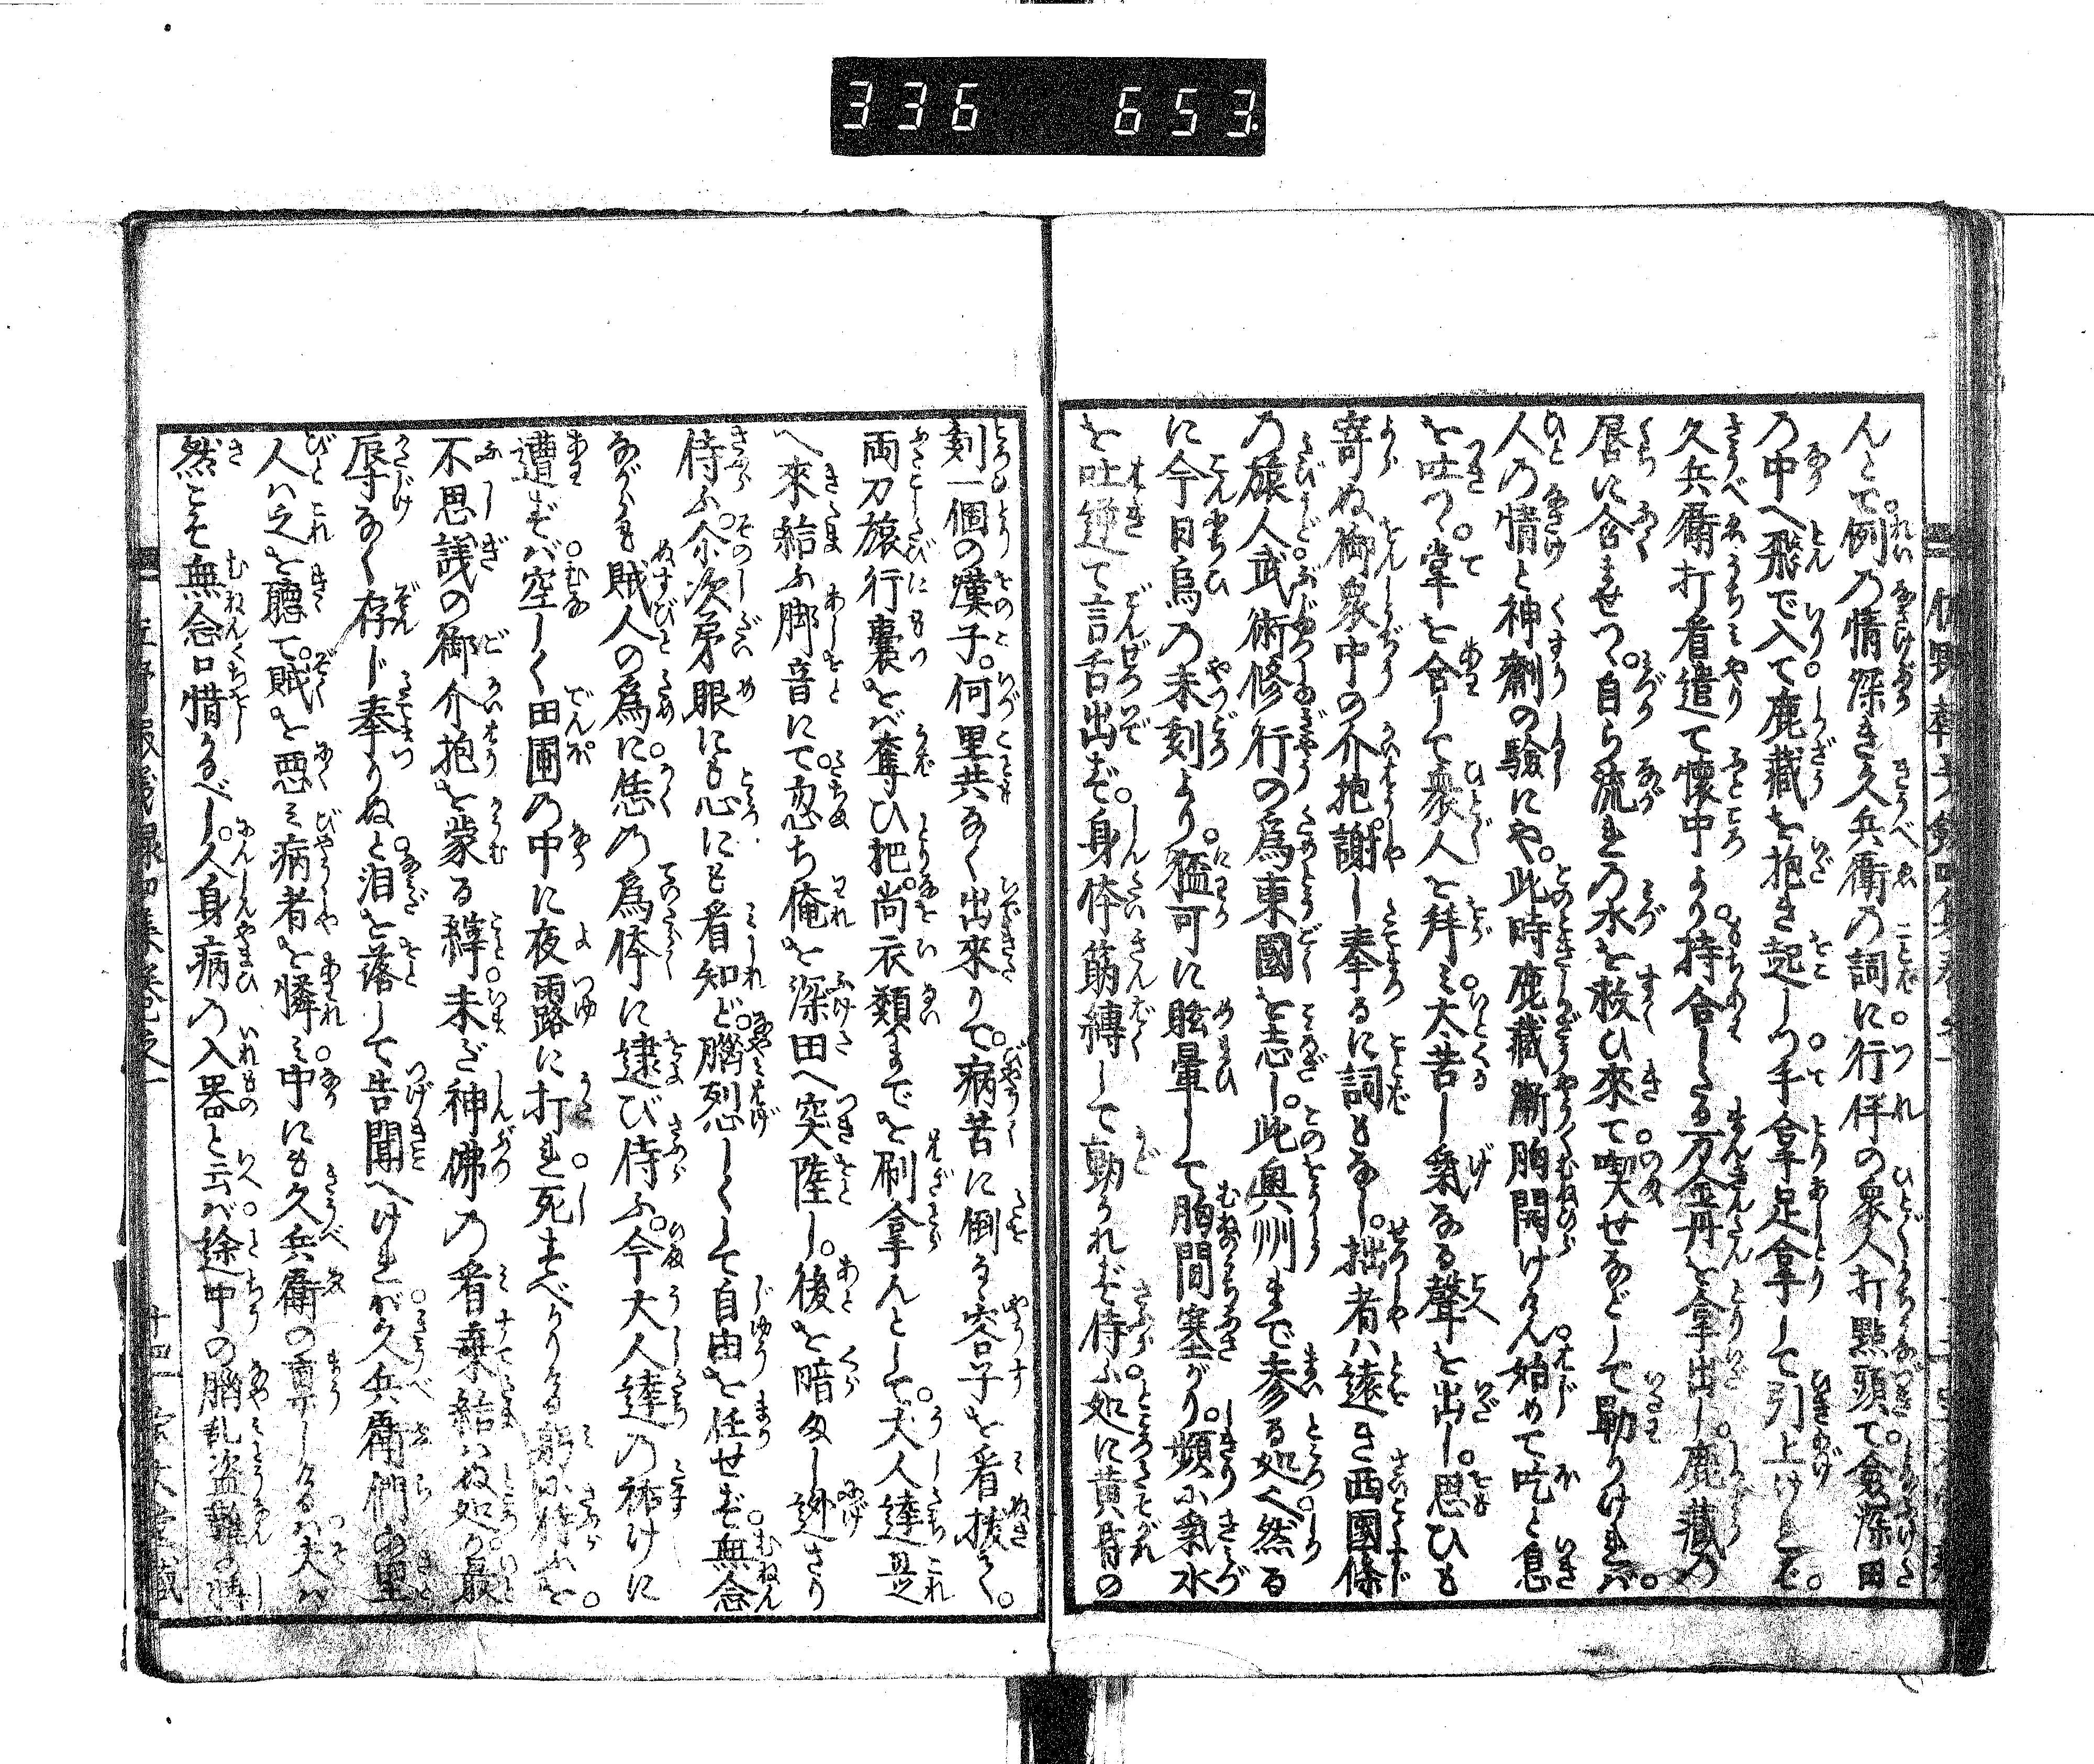 336 653
んとて。例の情深き久兵衛の詞に行伴の衆人打點頭て僉深田
の中へ飛で入て鹿藏を抱き起しつ手拿足拿して引上けれど。
久兵衛打看遣て懷中より。持合したる万金丹を拿出し鹿藏の
唇に含ませつ。自ら流れの水を救ひ來て喫せなどして勦りければ。
人の情と神劑の驗にや。此時鹿藏漸胸開けけん始めて吃と息
を吐つゝ。掌を合して衆人を拜み太苦し氣なる聲を出し。思ひも
寄ぬ御衆中の介抱謝し奉るに詞もなし。拙者ハ遠き西國係
の旅人武術修行の爲東國を志し。此奥州まで參る処。然る
に今日烏の未刻より。猛可に眩暈して胸間塞がり。頻に氣水
を吐逆て言舌出ず。身体筋縛して動かれず侍ふ処に黄昏の
刻一個の漢子。何里共なく出來りて。病苦に倒る容子を看拔く。
両刀旅行嚢をバ奪ひ把。尚衣類までを剥拿んとして。大人達是
へ來結ふ脚音にて。忽ち俺を深田へ突陸し。後を暗まし迯さり
侍ふ。尒次弟眼にも心にも看知ど。腦烈しくして自由を任せず無念
ながらも賊人の爲に恁の爲体に逮び侍ふ。今大人達の祐けに
遭ずバ空しく田圃の中に夜露に打れ死すべかりける躬に侍ふを。
不思議の御介抱を蒙る縡。未ざ神佛の看棄結ハぬ処か最
辱なく存じ奉りぬと泪を落して告聞へければ久兵衛們の里
人ハ之を聽て。賊を惡み病者を憐み中にも久兵衛の尊しけるハ夫ハ
然こそ無念口惜かるべし。人身病の入器と云バ途中の腦乱盗難